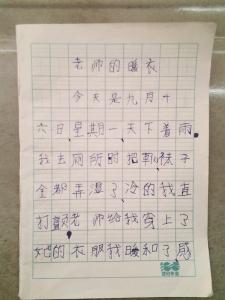 老师的暖衣
今天是九月十
六日,星期一,天下着雨
我去厕所时把鞋袜子
全都弄湿了,冷的我直
打颤,老师给我穿上了
她的衣服我暖和了,感